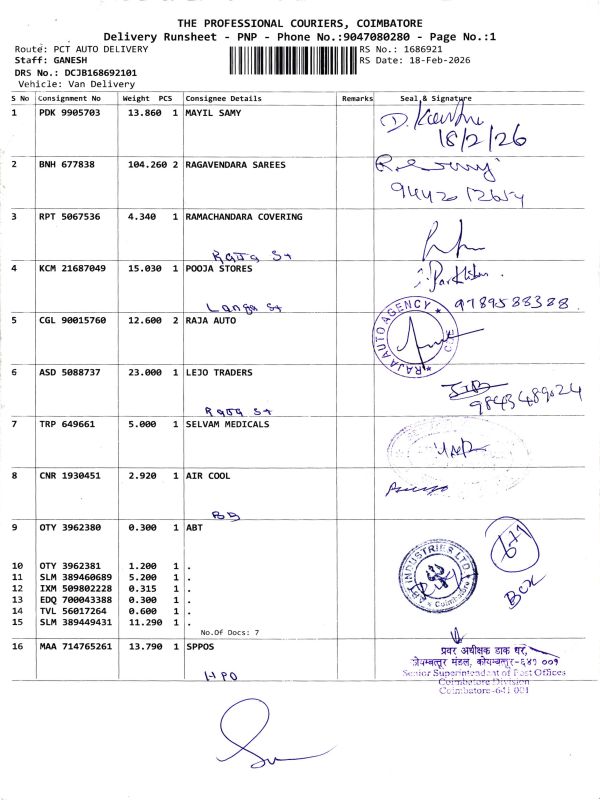 THE PROFESSIONAL COURIERS, COIMBATORE
Delivery Runsheet - PNP - Phone No.:9047080280 - Page No.:1
Route: PCT AUTO DELIVERY RS No.: 1686921
Staff: GANESH RS Date: 18-Feb-2026
DRS No.: DCJB168692101
Vehicle: Van Delivery
S No Consignment No Weight PCS Consignee Details Remarks Seal & Signature
1 PDK 9905703 13.860 1 MAYIL SAMY
18/2/26
2 BNH 677838 104.260 2 RAGAVENDARA SAREES
3 RPT 5067536 4.340 1 RAMACHANDARA COVERING
Raja St
4 KCM 21687049 15.030 1 POOJA STORES
Langa St 9789588388
5 CGL 90015760 12.600 2 RAJA AUTO
RAJA AUTO AGENCY
6 ASD 5088737 23.000 1 LEJO TRADERS
Raja St 9843489024
7 TRP 649661 5.000 1 SELVAM MEDICALS
8 CNR 1930451 2.920 1 AIR COOL
9 OTY 3962380 0.300 1 ABT
10 OTY 3962381 1.200 1 .
11 SLM 389460689 5.200 1 .
12 IXM 509802228 0.315 1 .
13 EDQ 700043388 0.300 1 .
14 TVL 56017264 0.600 1 .
15 SLM 389449431 11.290 1 .
INDUSTRIES LTD
Coimbatore
No.Of Docs: 7
16 MAA 714765261 13.790 1 SPPOS
HPO
प्रवर अधीक्षक डाक घर,
कोयम्बत्तूर मंडल, कोयम्बत्तूर-६४१ ००१
Senior Superintendent of Post Offices
Coimbatore Division
Coimbatore-641 001